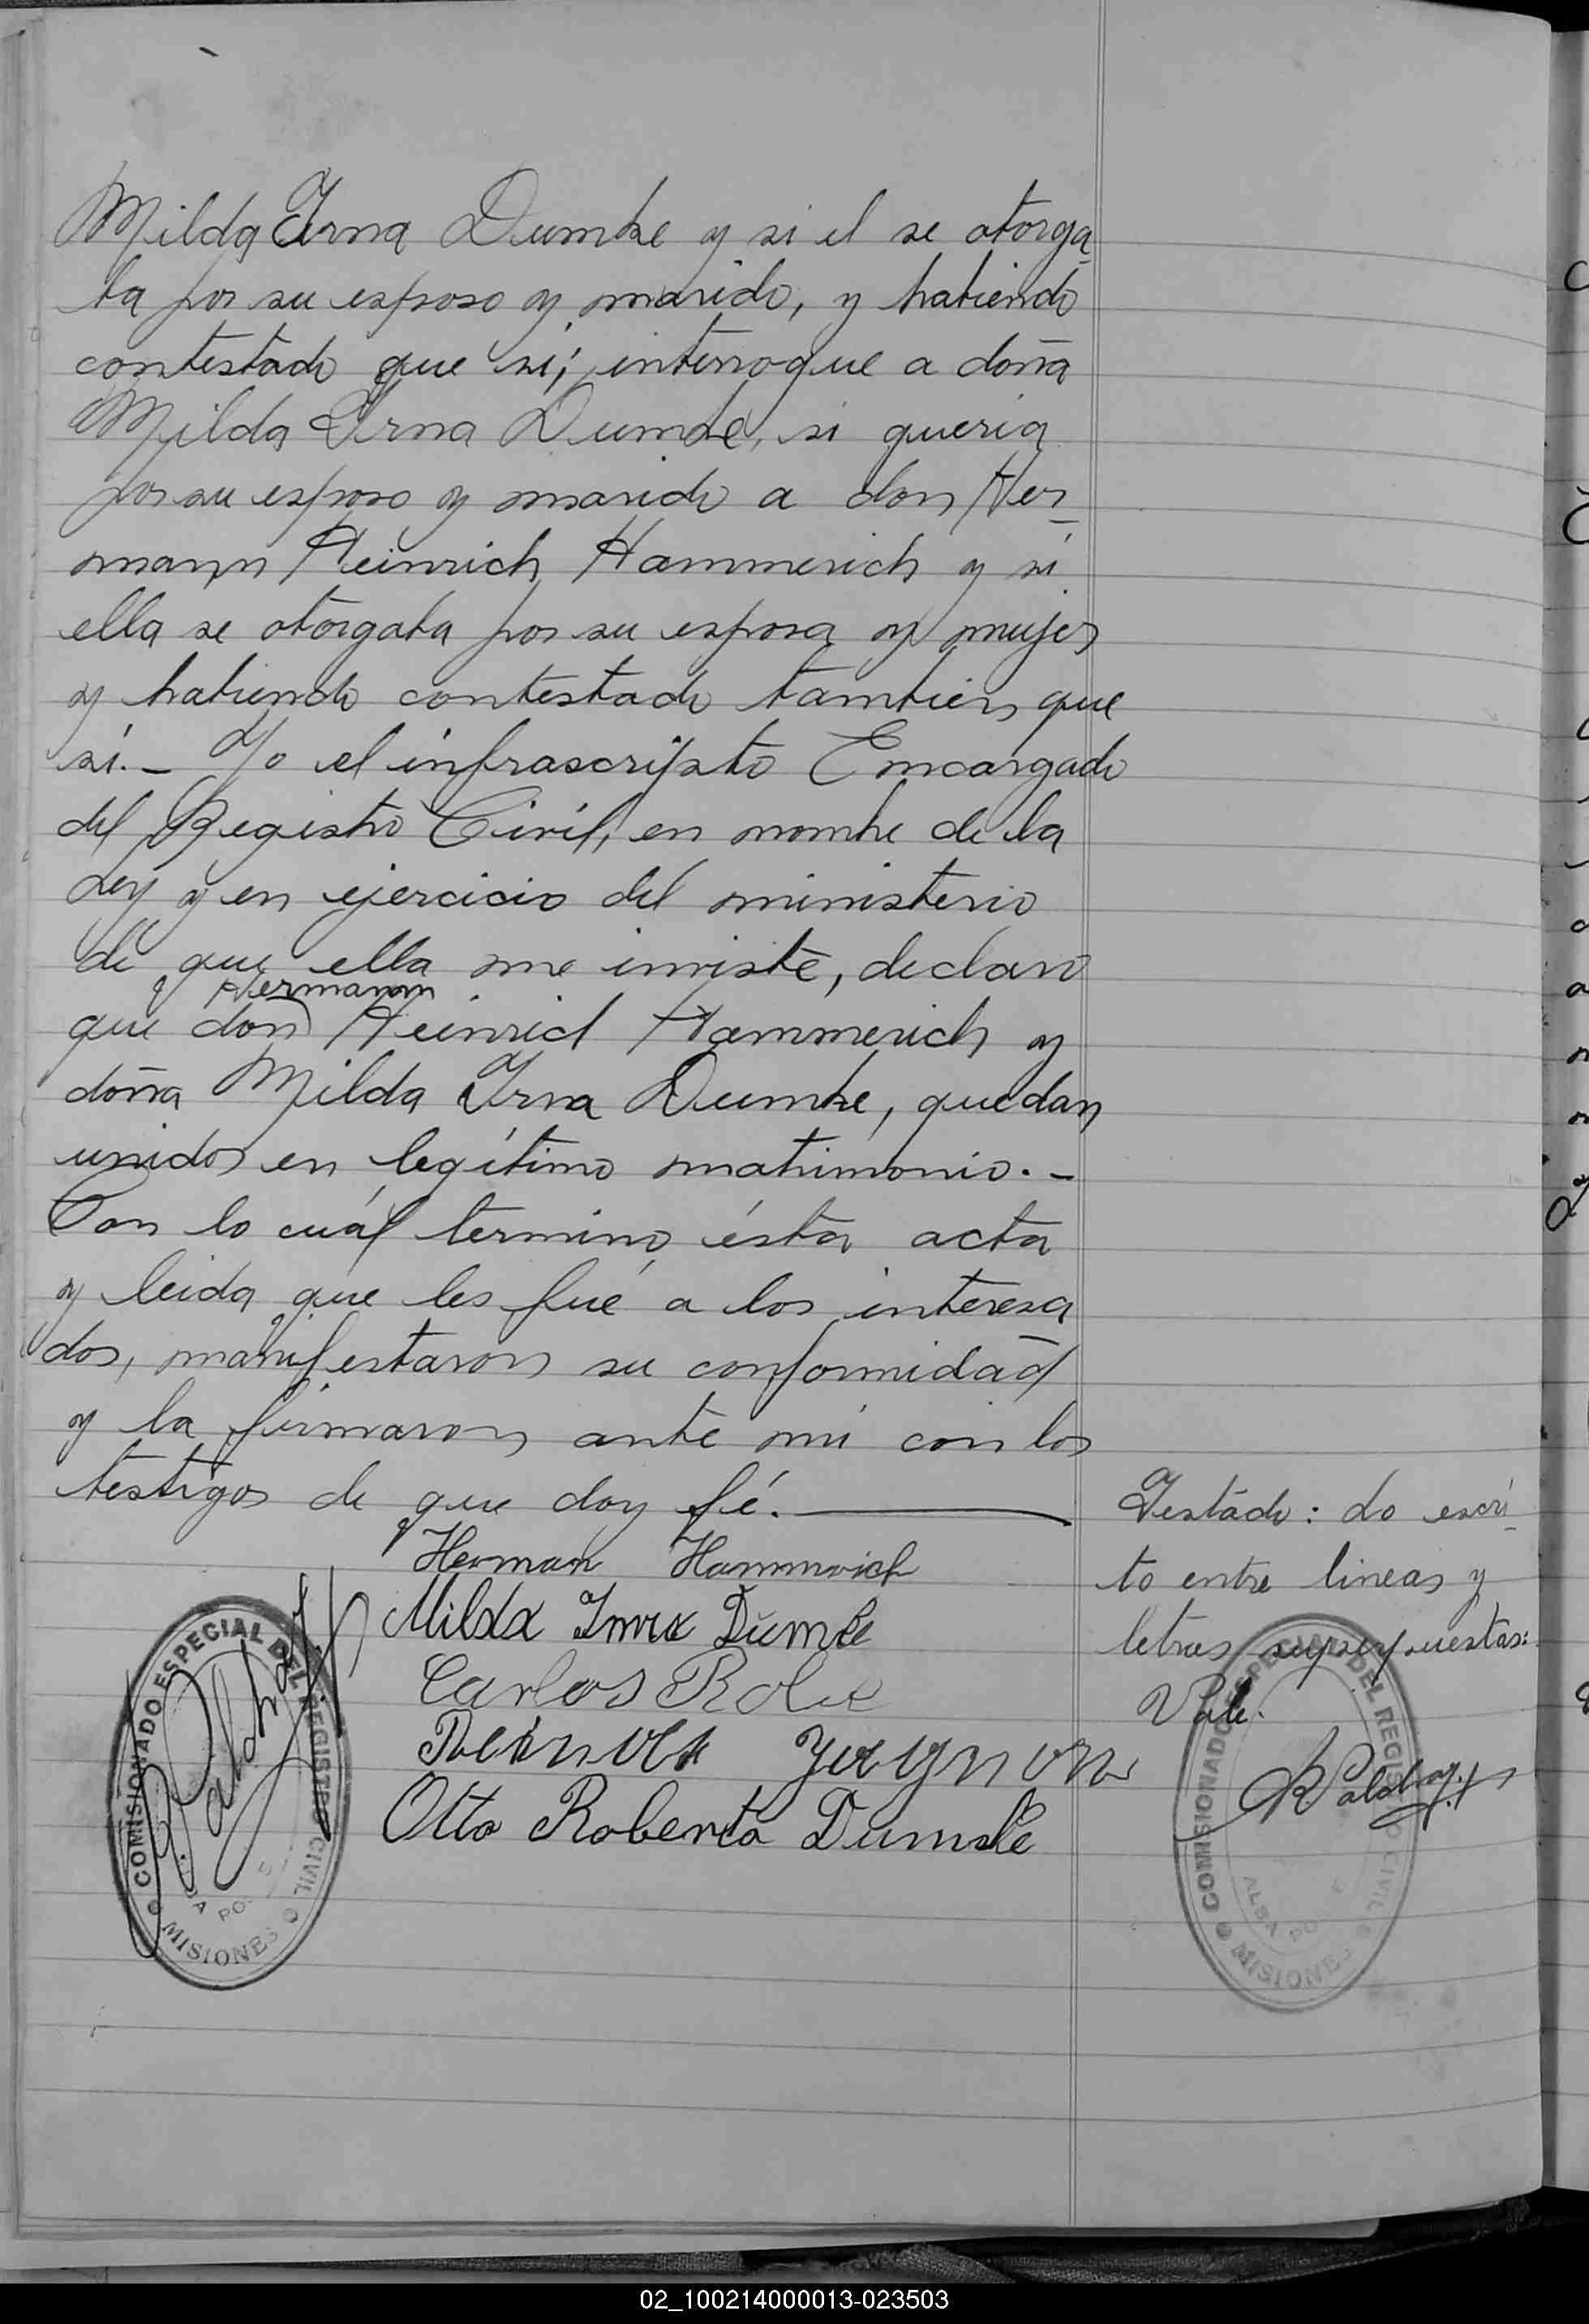 Milda Irna Dumke y si el se otorga-
ba por su esposo y marido, y habiendo
contestado que sí; interrogue a doña
Milda Irna Dumke, si queria
por su esposo y marido a don Her-
mann Heinrich Hammerich y si
ella se otorgaba por su esposa y mujer
y habiendo contestado tambien que
sí.- Yo el infrascripto Encargado
del Registro Civil, en nombre de la
Ley y en ejercicio del ministerio
de que ella me inviste, declaro
Hermann
que don Heinrich Hammerich y
doña Milda Irna Dumke, quedan
unidos en legítimo matrimonio.-
Con lo cuál termino ésta acta
y leida que les fué a los interesa
dos, manifestaron su conformidad
y la firmaron ante mi con los
testigos de que doy fé.
Testado: Lo escri-
to entre lineas y
letras superpuestas:
Vale.
Herman Hammerich
Milda Irna Dumke
Carlos
Otto Roberto Dumke
COMISIONADO ESPECIAL DEL REGISTRO CIVIL
MISIONES
COMISIONADO ESPECIAL DEL REGISTRO CIVIL
ALBA POSSE
MISIONES
02_100214000013-023503